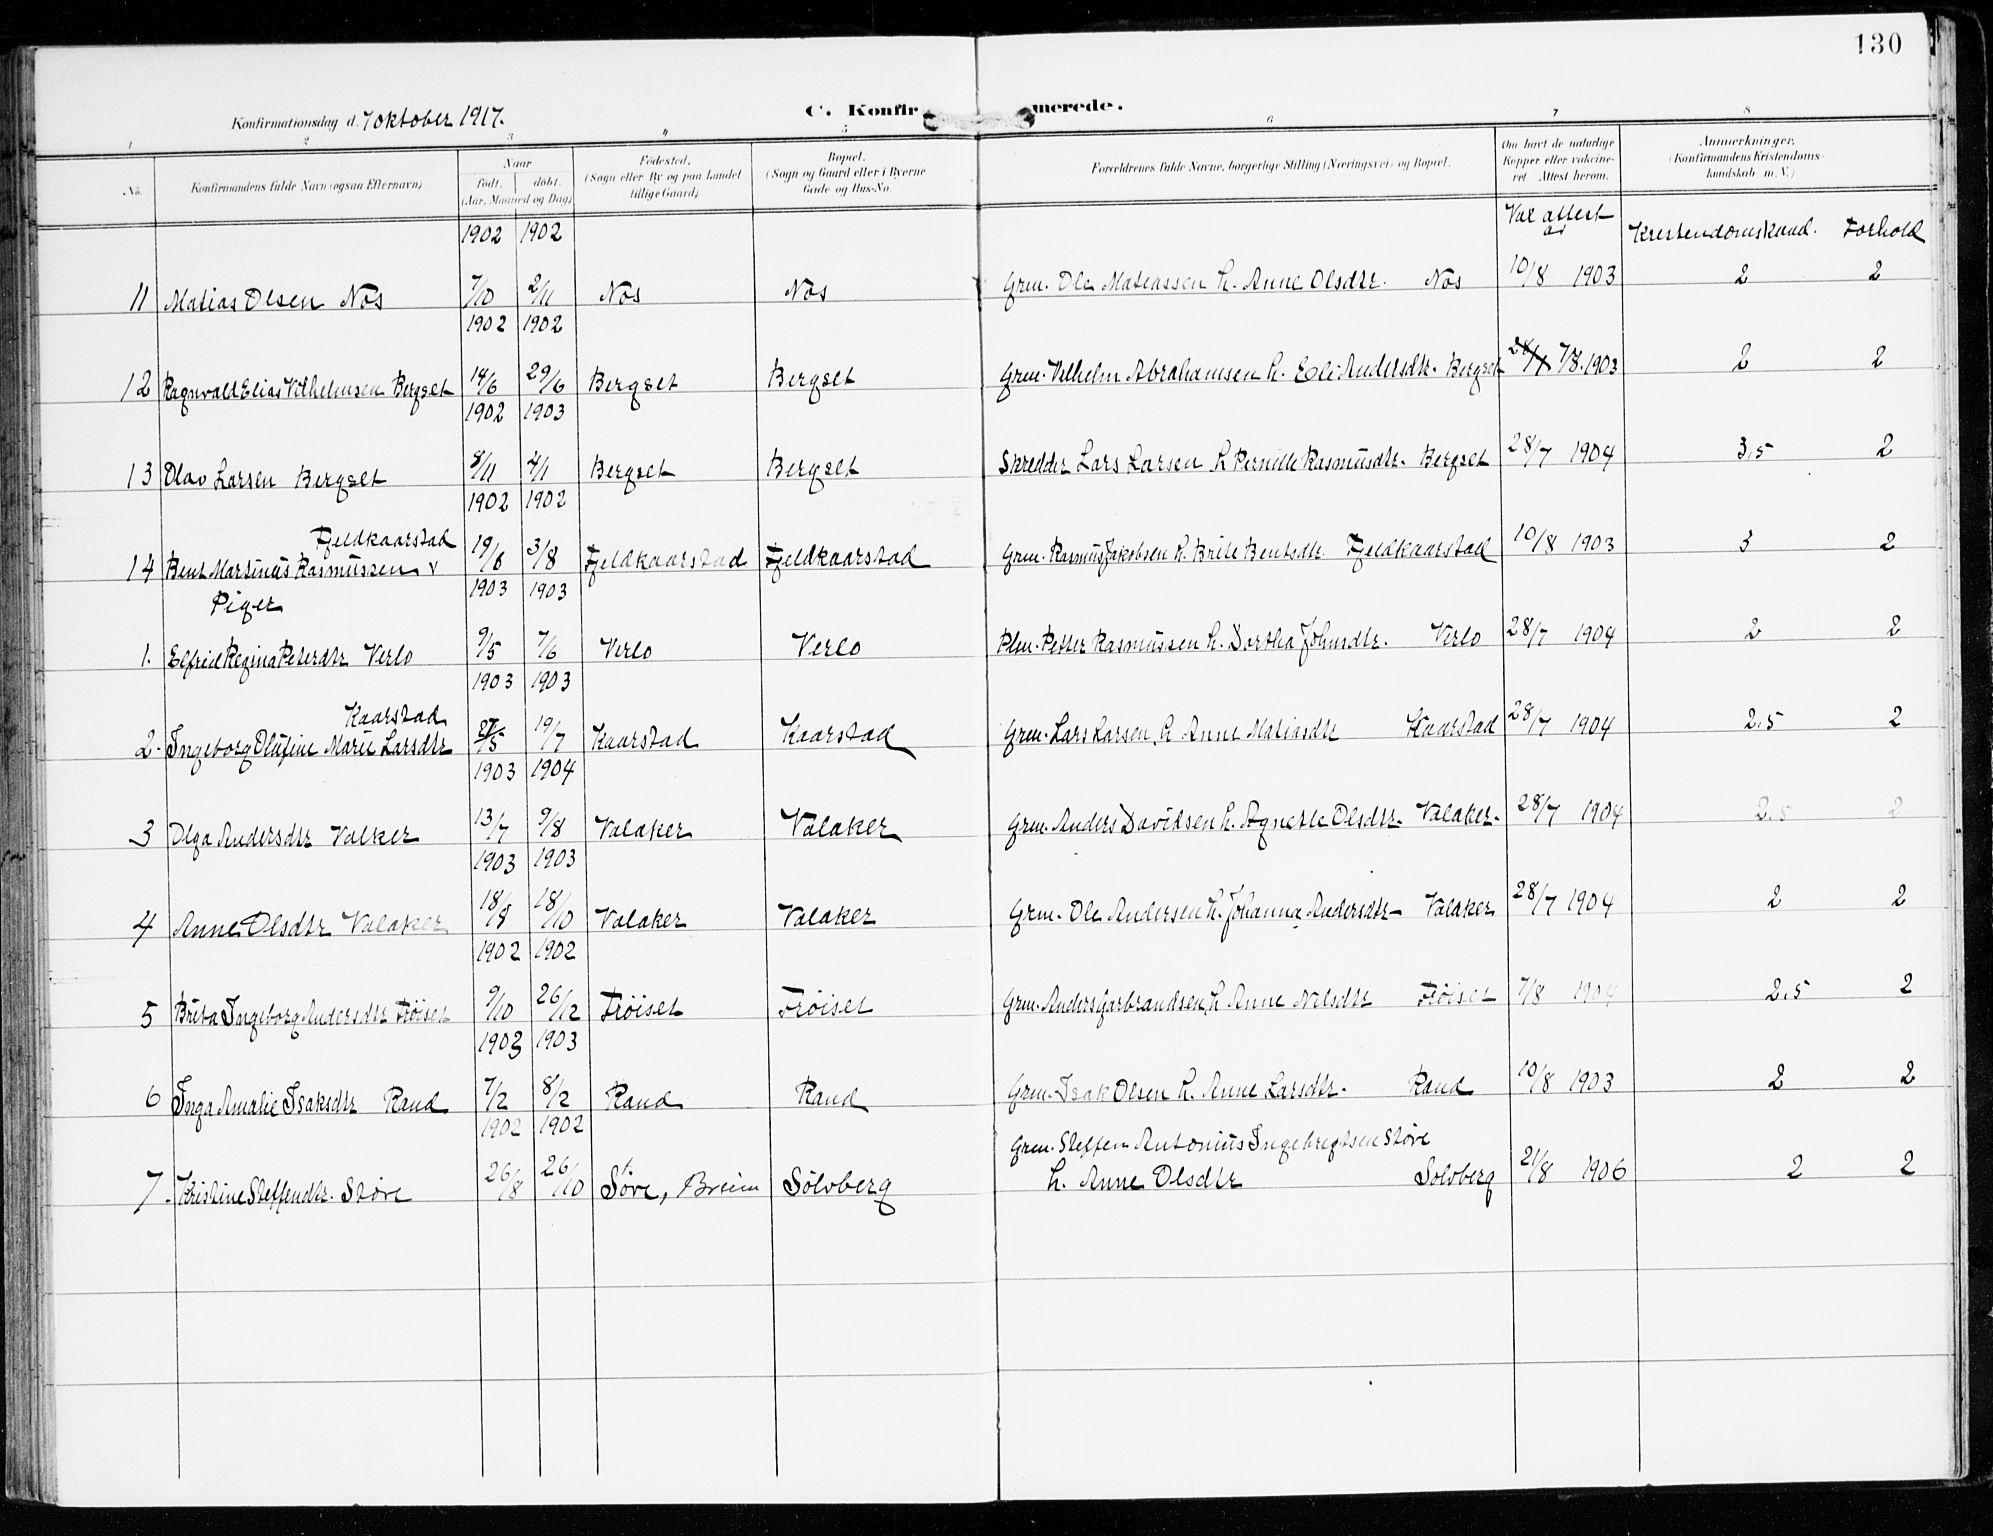 130
Konfirmationsdag d. 7 oktober 1917.
C. Konfirmerede.
1 2 3 4 5 6 7 8
No.
Konfirmandens fulde Navn (ogsaa Efternavn)
Naar
født. døbt.
(Aar, Maaned og Dag)
Fødested.
(Sogn eller By og paa Landet
tillige Gaard)
Bopæl.
(Sogn og Gaard eller i Byerne
Gade og Hus-No.
Forældrenes fulde Navne, borgerlige Stilling (Næringsvei) og Bopæl.
Om havt de naturlige
Kopper eller vakcine-
ret Attest herom.
Anmerkninger.
(Konfirmandens Kristendoms-
kundskab m. V.)
Vax attest
av
Kristendomskund. Forhold
1902 1902
11 Matias Olsen Nos 7/10 2/11 Nos Nos Grm. Ole Matiassen h. Anne Olsdtr. Nos 10/8 1903 2 2
1902 1902
12 Ragnvald Elias Vilhelmsen Bergset 14/6 29/6 Bergset Bergset Grm. Vilhelm Abrahamsen h. Eli Andersdtr. Bergset 7/8. 1903 2 2
1902 1903
13 Olav Larsen Bergset 8/11 4/1 Bergset Bergset Skredder Lars Larsen h Pernille Rasmusdtr. Bergset 28/7 1904 3,5 2
1902 1902
Fjeldkaarstad
14 Bent Martinus Rasmussen v 19/6 3/8 Fjeldkaarstad Fjeldkaarstad Grm. Rasmus Jakobsen h. Brite Bentsdtr. Fjeldkaarstad 10/8 1903 3 2
1903 1903
Piger
1. Elfrid Regina Petersdtr Verlo 9/5 7/6 Verlo Verlo Plm. Petter Rasmussen h. Dortha Johnsdtr. Verlo 28/7 1904 2 2
1903 1903
Kaarstad
2. Ingeborg Olufine Marie Larsdtr 27/5 19/7 Kaarstad Kaarstad Grm. Lars Larsen, h Anne Matiasdtr Kaarstad 28/7 1904 2,5 2
1903 1904
3 Olga Andersdtr Valker 13/7 9/8 Valaker Valaker Grm. Anders Davidsen h. Agnethe Olsdtr. Valaker. 28/7 1904 2,5 2
1903 1903
4 Anne Olsdtr Valaker 18/8 18/10 Valaker Valaker Grm. Ole Andersen h. Johanna Andersdtr Valaker 28/7 1904 2 2
1902 1902
5 Brita Ingeborg Andersdtr Frøiset 9/10 26/12 Frøiset Frøiset Grm. Anders Garbrandsen h Anne Nilsdtr Frøiset 7/8 1904 2,5 2
1903 1903
6 Inga Amalie Isaksdtr Rand 7/2 8/2 Rand Rand Grm. Isak Olsen h. Anne Larsdtr. Rand 10/8 1903 2 2
1902 1902
Grm. Steffen Antonius Ingebregtsen Støve
7. Kristine Steffendtr. Støve 26/8 26/10 Søve, Breim Solvberg h. Anne Olsdtr Solvberg 21/8 1906 2 2